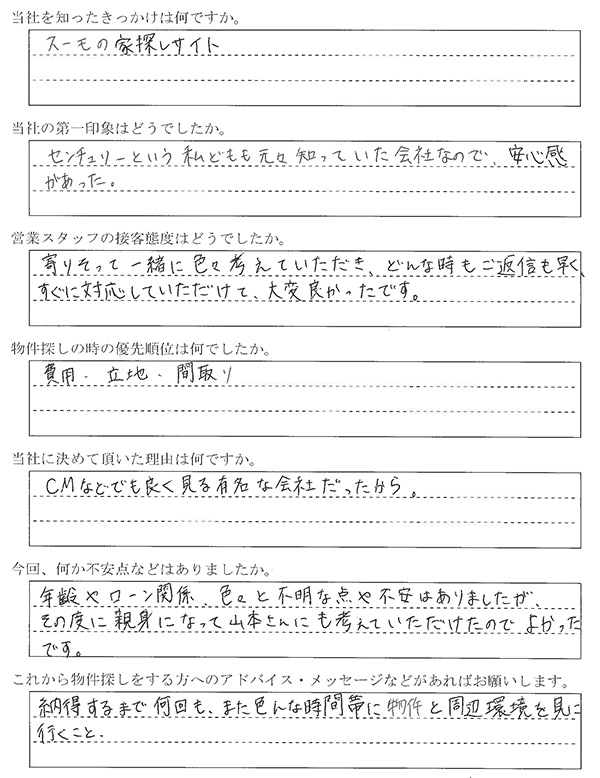 当社を知ったきっかけは何ですか。
スーモの家探しサイト
当社の第一印象はどうでしたか。
センチュリーという私どもも元々知っていた会社なので、安心感
があった。
営業スタッフの接客態度はどうでしたか。
寄りそって一緒に色々考えていただき、どんな時もご返信も早く、
すぐに対応していただけて、大変良かったです。
物件探しの時の優先順位は何でしたか。
費用・立地・間取り
当社に決めて頂いた理由は何ですか。
CMなどでも良く見る有名な会社だったから。
今回、何か不安点などはありましたか。
年齢やローン関係、色々と不明な点や不安はありましたが、
その度に親身になって山本さんにも考えていただけたのでよかった
です。
これから物件探しをする方へのアドバイス・メッセージなどがあればお願いします。
納得するまで何回も、また色んな時間帯に物件と周辺環境を見に
行くこと.